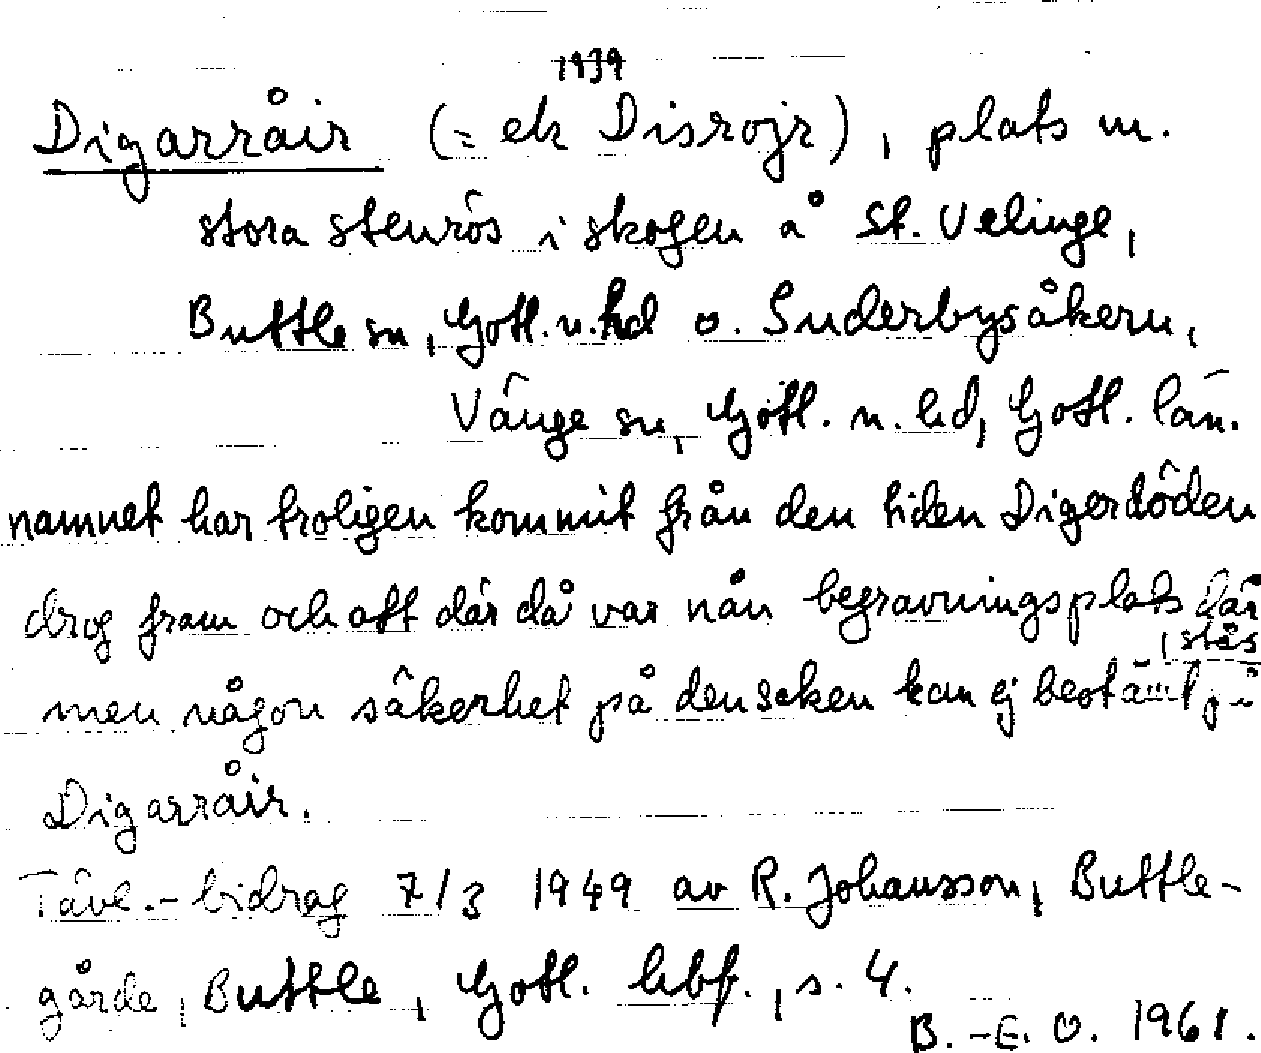 1939
Digarråir (= ek Disrojr), plats m.
stora stenrös i skogen å St. Velinge,
Buttle sn, Gotl. n. hd o. Suderbysåkern,
Vänge sn, Gotl. n. hd, Gotl. län.
namnet har troligen kommit från den tiden Digerdöden
drog fram och att där då var nån begravningsplats där
, stås
men någon säkerhet på den saken kan ej bestämt på
Digarråir.
Tävl.-bidrag 7/3 1949 av R. Johansson, Buttle-
gårde, Buttle, Gotl. hbf., s. 4.
B.-E. O. 1961.